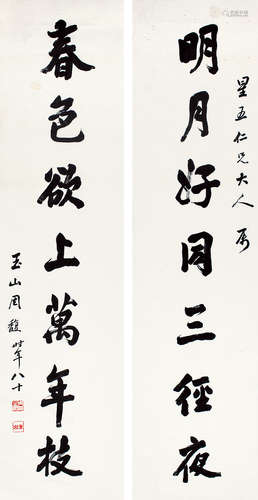 明月好同三徑夜
星五仁兄大人属
春色欲上萬年枝
玉山周馥時年八十